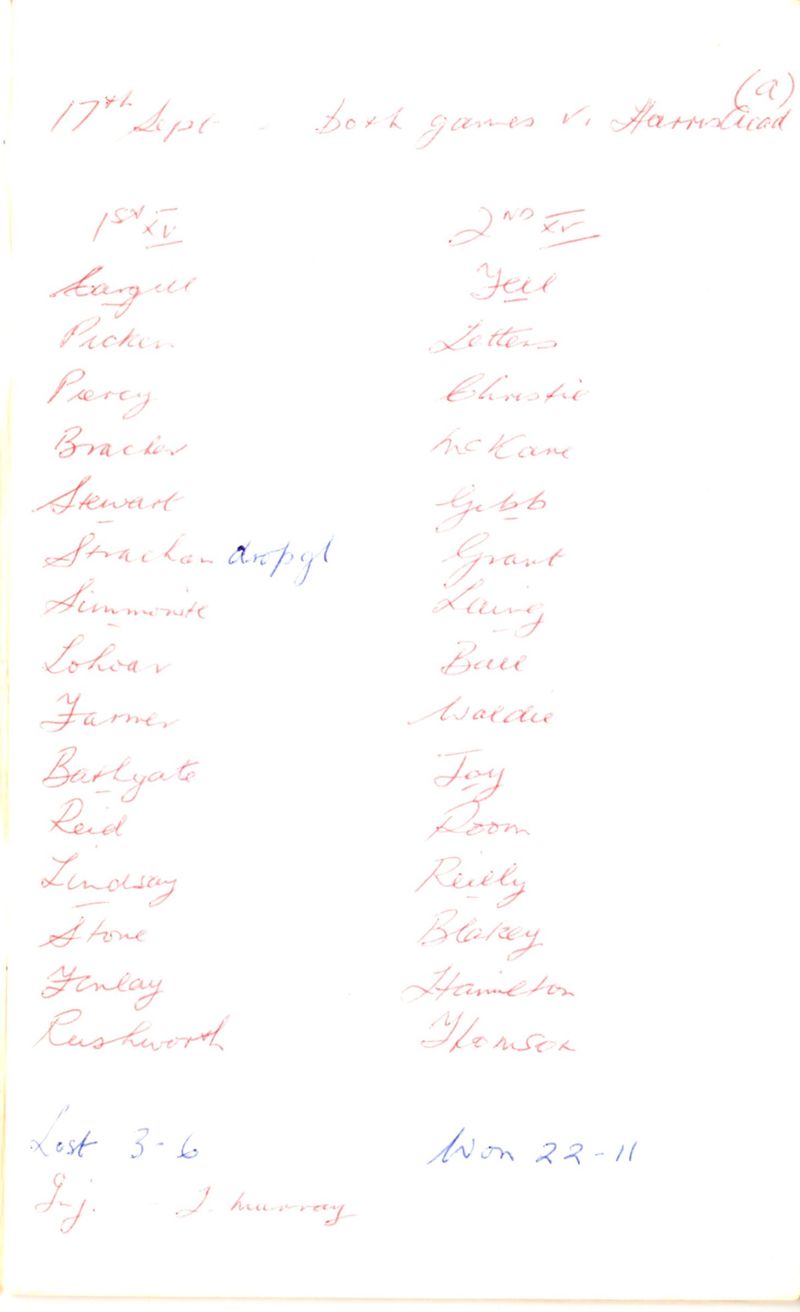 (a)
17th Sept - both games v.
1st XV 2ND XV
Cargill Fell
Picken Letters
Piercy Christie
Bracher McKane
Stewart Gibb
Strachan dropgl Grant
Simmonite Laing
Lohoar Ball
Farmer Waldie
Bathgate Joy
Reid Room
Lindsay Reilly
Stone Blakey
Finlay Hamilton
Rushworth Thomson
Lost 3-6 Won 22-11
Inj. - J. Murray